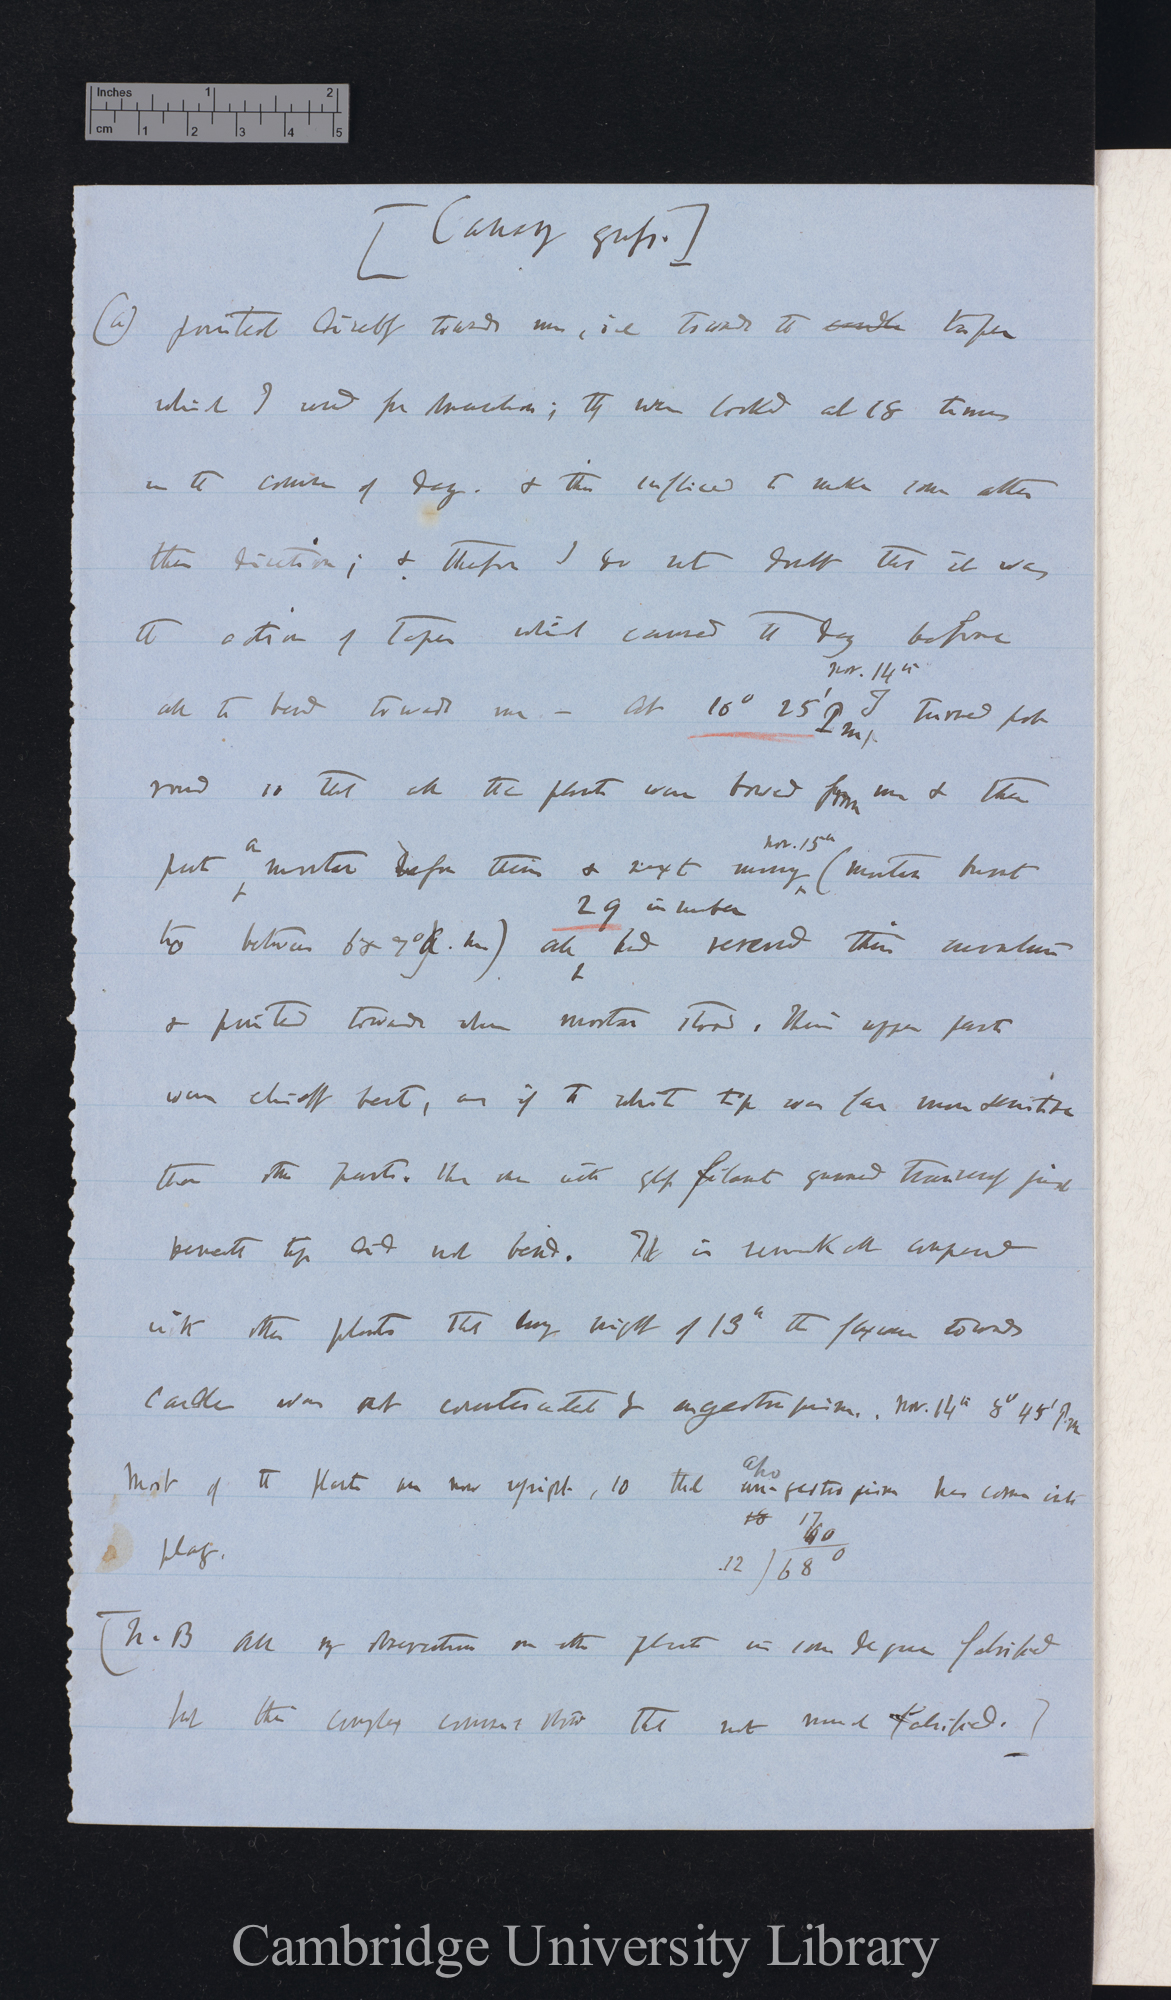 Inches 1 2
cm 1 2 3 4 5
[Canary grass.]
(a) pointed directly towards me, i.e towards the candle taper
which I used for observations; they were looked at 18 times
in the course of day. & this sufficed to make some alter
their direction; & therefore I do not doubt that it was
the action of taper which caused the day before
Nov. 14th
all to bend towards me — At 10° 25' P.m. I turned pot
round so that all the plants were bowed from me & then
a Nov. 15th
put mortar before them & next morning (mortar burnt
29 in number
up between 6 & 7° a.m) all had reversed their curvature
& pointed towards where mortar stood. Their upper parts
were chiefly bent, as if the white tip was far more sensitive
than other parts. The one with glass filament gummed transversely just
beneath tip did not bend. It is remarkable compared
with other plants that during night of 13th the flexure towards
candle was not counteracted by apogeotropism. Nov. 14th 8° 45' P.m
Most of the plants are now upright, so that
apo
geotropism has come into
play.
18 17
60
12 ) 68 0
[N.B All my observations on other plants in some degree falsified
but their complex courses show that not much falsified.]
Cambridge University Library